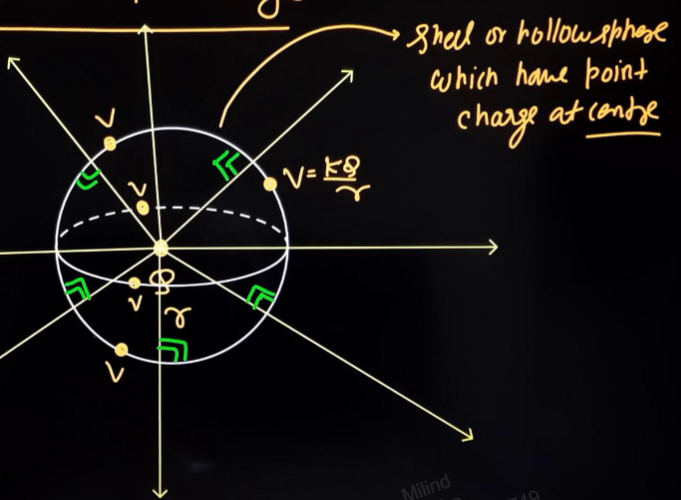 shell or hollow sphere
which have point
charge at centre
V
V = KQ/r
V
Q
V
r
V
Milind